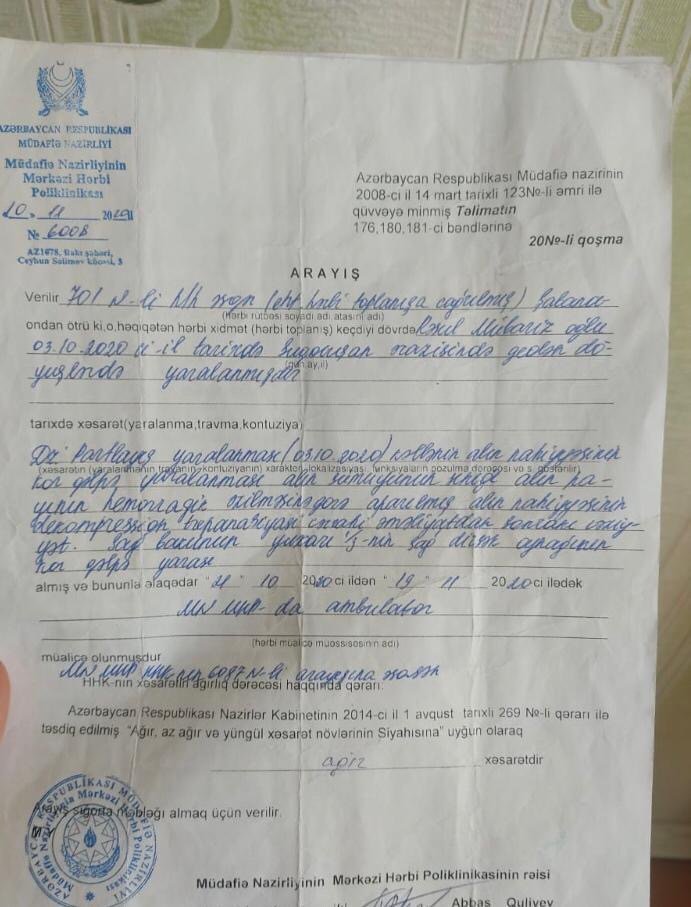 AZƏRBAYCAN RESPUBLİKASI
MÜDAFİƏ NAZİRLİYİ
Müdafiə Nazirliyinin
Mərkəzi Hərbi
Poliklinikası
20. 11 2020
№ 6008
AZ1078, Bakı şəhəri,
Ceyhun Səlimov küçəsi, 3
Azərbaycan Respublikası Müdafiə nazirinin
2008-ci il 14 mart tarixli 123№-li əmri ilə
qüvvəyə minmiş Təlimatın
176,180,181-ci bəndlərinə
20№-li qoşma
ARAYIŞ
Verilir 701 N-li h/h əsgəri toplanışa çağırılmış)
(Hərbi rütbəsi soyadı adı atasını adı)
ondan ötrü ki,o,həqiqətən hərbi xidmət (hərbi toplanış) keçdiyi dövrdə Mübariz oğlu
03.10.2020 ci-il tarixdə Suqovuşan ərazisində gedən dö-
yüşlərdə yaralanmışdır
(gün,ay,il)
tarixdə xəsarət(yaralanma,travma,kontuziya)
Partlayış yaralanması (03.10.2020) kəllənin alın nahiyyəsinin
(xəsarətin (yaralanmanın,travmanın,kontuziyanın) xarakteri,lokalizasiyası, funksiyaların pozulma dərəcəsi və s. göstərilir)
kor qəlpə yaralanması alın sümüyünün sınığı alın pa-
yının hemorragik əzilməsinə görə aparılmış alın nahiyyəsinin
dekompression trepanasiyası cərrahi əməliyyatdan sonrakı vəziy-
yət. Sağ budun yuxarı 1/3-nin sağ dirsək
kor qəlpə yarası
almış və bununla əlaqədar "21" 10 2020 ci ildən "19" 11 2020 ci ilədək
MN MHP-da ambulator
(hərbi müalicə müəssisəsinin adı)
müalicə olunmuşdur
MN MHP HHK-nın 6087 N-li arayışına əsasən
HHK-nın xəsarətin ağırlıq dərəcəsi haqqında qərarı:
Azərbaycan Respublikası Nazirlər Kabinetinin 2014-ci il 1 avqust tarixli 269 №-li qərarı ilə
təsdiq edilmiş "Ağır, az ağır və yüngül xəsarət növlərinin Siyahısına" uyğun olaraq
ağır xəsarətdir
Arayış sığorta məbləği almaq üçün verilir.
M.Y
AZƏRBAYCAN RESPUBLİKASI MÜDAFİƏ NAZİRLİYİ
Müdafiə Nazirliyinin Mərkəzi Hərbi Poliklinikası
Müdafiə Nazirliyinin Mərkəzi Hərbi Poliklinikasının rəisi
Abbas Quliyev